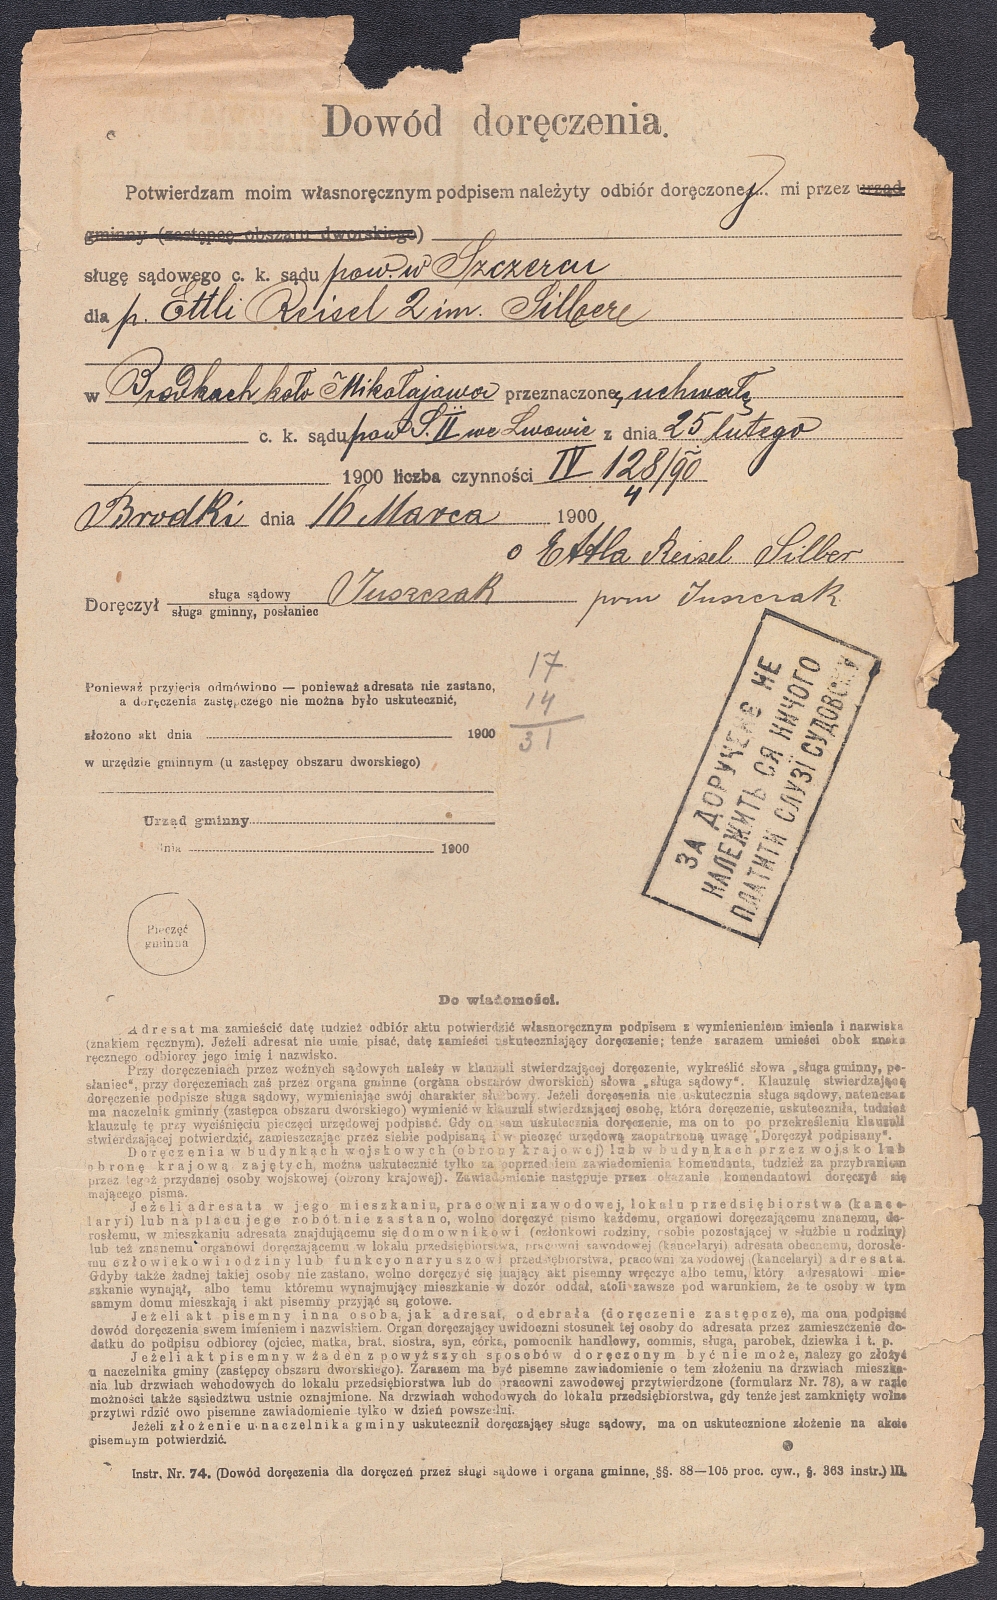 Dowód doręczenia.
Potwierdzam moim własnoręcznym podpisem należyty odbiór doręczonej... mi przez urząd
gminny (zastępcę obszaru dworskiego)
sługę sądowego c. k. sądu pow. w Szczercu
dla p. Ettli Reisel 2 im. Silbere
w Brodkach koło Mikołajowa przeznaczoneą uchwałę
c. k. sądu pow S. II we Lwowie z dnia 25 lutego
1900 liczba czynności IV 128/90
4
Brodki dnia 16 Marca 1900
o Ettla Reisel Silber
Doręczył sługa sądowy Juszczak pom Juszczak
sługa gminny, posłaniec
17
14
31
Ponieważ przyjęcia odmówiono — ponieważ adresata nie zastano,
a doręczenia zastępczego nie można było uskutecznić,
złożono akt dnia 1900
w urzędzie gminnym (u zastępcy obszaru dworskiego)
Urząd gminny
dnia 1900
ЗА ДОРУЧЕНЄ НЕ
НАЛЕЖИТЬ СЯ НИЧОГО
ПЛАТИТИ СЛУЗЇ СУДОВОМУ
Pieczęć
gminna
Do wiadomości.
Adresat ma zamieścić datę tudzież odbiór aktu potwierdzić własnoręcznym podpisem z wymienieniem imienia i nazwiska
(znakiem ręcznym). Jeżeli adresat nie umie pisać, datę zamieści uskuteczniający doręczenie; tenże zarazem umieści obok znaku
ręcznego odbiorcy jego imię i nazwisko.
Przy doręczeniach przez woźnych sądowych należy w klauzuli stwierdzającej doręczenie, wykreślić słowa „sługa gminny, po-
słaniec", przy doręczeniach zaś przez organa gminne (organa obszarów dworskich) słowa „sługa sądowy". Klauzulę stwierdzającą
doręczenie podpisze sługa sądowy, wymieniając swój charakter służbowy. Jeżeli doręczenia nie uskutecznia sługa sądowy, natenczas
ma naczelnik gminny (zastępca obszaru dworskiego) wymienić w klauzuli stwierdzającej osobę, która doręczenie, uskuteczniła, tudzież
klauzulę tę przy wyciśnięciu pieczęci urzędowej podpisać. Gdy on sam uskutecznia doręczenie, ma on to po przekreśleniu klauzuli
stwierdzającej potwierdzić, zamieszczając przez siebie podpisaną i w pieczęć urzędową zaopatrzoną uwagę "Doręczył podpisany".
Doręczenia w budynkach wojskowych (obrony krajowej) lub w budynkach przez wojsko lub
obronę krajową zajętych, można uskutecznić tylko za poprzedniem zawiadomienia komendanta, tudzież za przybraniem
przez tegoż przydanej osoby wojskowej (obrony krajowej). Zawiadomienie następuje przez okazanie komendantowi doręczyć się
mającego pisma.
Jeżeli adresata w jego mieszkaniu, pracowni zawodowej, lokalu przedsiębiorstwa (kance-
laryi) lub na placu jego robót nie zastano, wolno doręczyć pismo każdemu, organowi doręczającemu znanemu, do-
rosłemu, w mieszkaniu adresata znajdującemu się domownikowi (członkowi rodziny, osobie pozostającej w służbie u rodziny)
lub też znanemu organowi doręczającemu w lokalu przedsiębiorstwa, pracowni zawodowej (kancelaryi) adresata obecnemu, dorosłe-
mu człowiekowi rodziny lub funkcyonaryuszowi przedsiębiorstwa, pracowni zawodowej (kancelaryi) adresata.
Gdyby także żadnej takiej osoby nie zastano, wolno doręczyć się mający akt pisemny wręczyć albo temu, który adresatowi mie-
szkanie wynajął, albo temu któremu wynajmujący mieszkanie w dozór oddał, atoli zawsze pod warunkiem, że te osoby w tym
samym domu mieszkają i akt pisemny przyjąć są gotowe.
Jeżeli akt pisemny inna osoba, jak adresat, odebrała (doręczenie zastępcze), ma ona podpisać
dowód doręczenia swem imieniem i nazwiskiem. Organ doręczający uwidoczni stosunek tej osoby do adresata przez zamieszczenie do-
datku do podpisu odbiorcy (ojciec, matka, brat, siostra, syn, córka, pomocnik handlowy, commis, sługa, parobek, dziewka i t. p.
Jeżeli akt pisemny w żaden z powyższych sposobów doręczonym być nie może, należy go złożyć
u naczelnika gminy (zastępcy obszaru dworskiego). Zarazem ma być pisemne zawiadomienie o tem złożeniu na drzwiach mieszka-
nia lub drzwiach wchodowych do lokalu przedsiębiorstwa lub do pracowni zawodowej przytwierdzone (formularz Nr. 78), a w razie
możności także sąsiedztwu ustnie oznajmione. Na drzwiach wchodowych do lokalu przedsiębiorstwa, gdy tenże jest zamknięty wolno
przytwierdzić owo pisemne zawiadomienie tylko w dzień powszedni.
Jeżeli złożenie u naczelnika gminy uskutecznił doręczający sługa sądowy, ma on uskutecznione złożenie na akcie
pisemnym potwierdzić.
Instr. Nr. 74. (Dowód doręczenia dla doręczeń przez sługi sądowe i organa gminne, §§. 88—105 proc. cyw., §. 363 instr.) III.